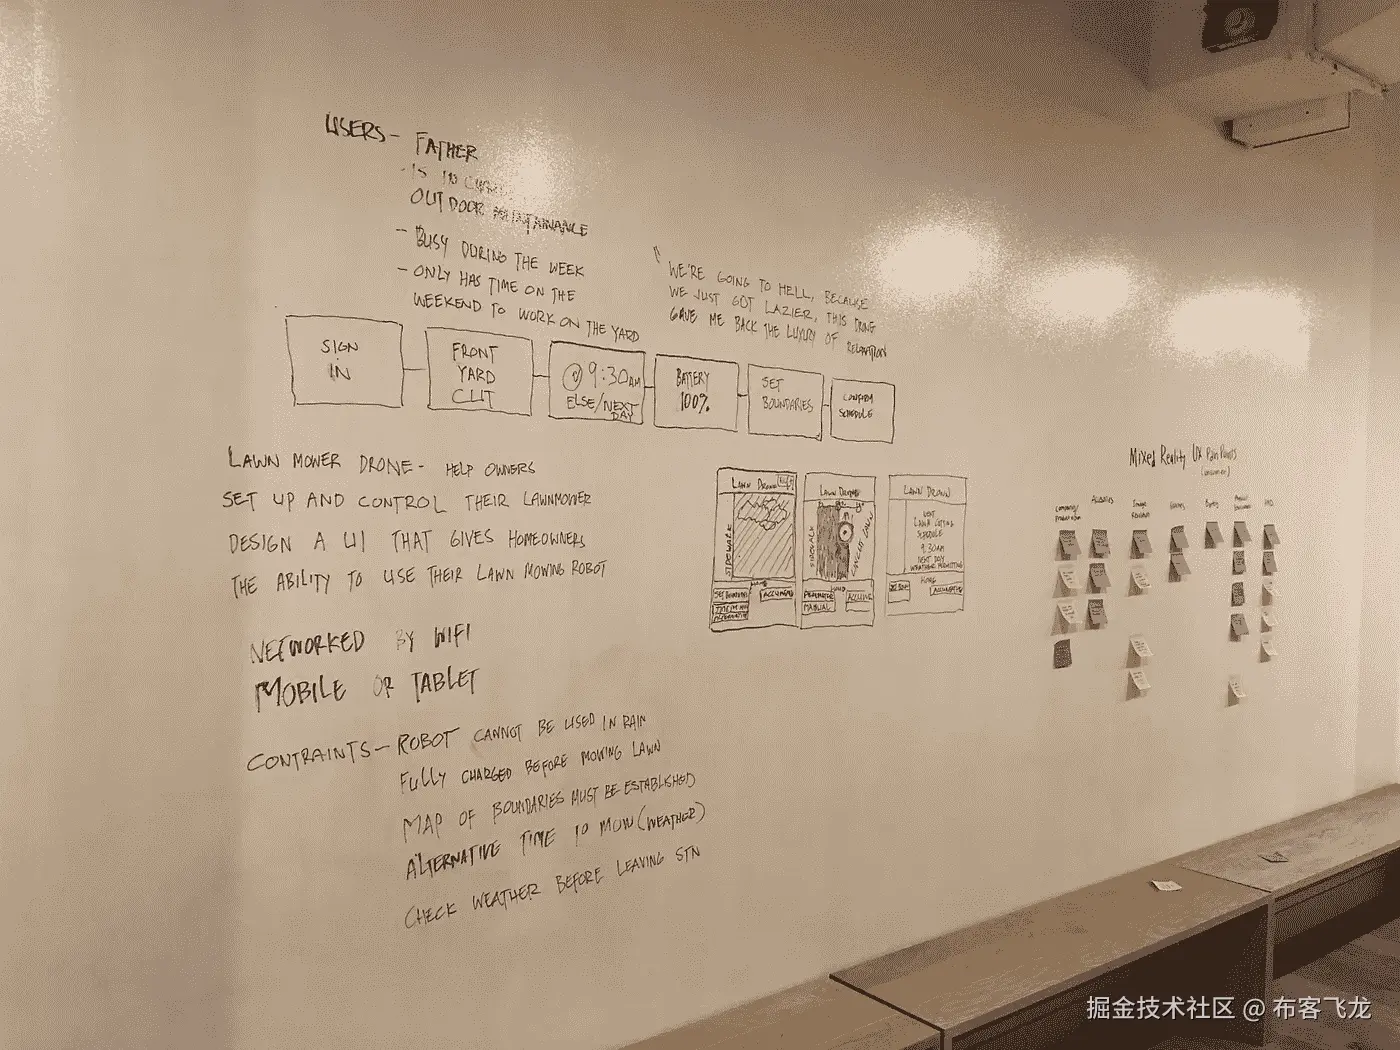 USERS- FATHER
- IS IN
OUTDOOR MAINTAINANCE
- BUSY DURING THE WEEK
- ONLY HAS TIME ON THE
WEEKEND TO WORK ON THE YARD
"WE'RE GOING TO HELL, BECAUSE
WE JUST GOT LAZIER, THIS
GAVE ME BACK THE LUXURY OF RELAXATION
SIGN
IN
FRONT
YARD
CUT
9:30AM
ELSE/NEXT
DAY
BATTERY
100%
SET
BOUNDARIES
CONFIRM
SCHEDULE
LAWN MOWER DRONE- HELP OWNERS
SET UP AND CONTROL THEIR LAWNMOWER
DESIGN A UI THAT GIVES HOMEOWNERS
THE ABILITY TO USE THEIR LAWN MOWING ROBOT
NETWORKED BY WIFI
MOBILE OR TABLET
CONTRAINTS- ROBOT CANNOT BE USED IN RAIN
FULLY CHARGED BEFORE MOWING LAWN
MAP OF BOUNDARIES MUST BE ESTABLISHED
ALTERNATIVE TIME TO MOW (WEATHER)
CHECK WEATHER BEFORE LEAVING STN
LAWN DRONE
SIDEWALK
SET BOUNDARIES
LAWN
SIDEWALK
UNCUT LAWN
MANUAL
LAWN
NEXT
LAWN CUTTING
SCHEDULE
9:30AM
NEXT DAY
WEATHER PERMITTING
Mixed Reality UX Pain Points
掘金技术社区 @ 布客飞龙